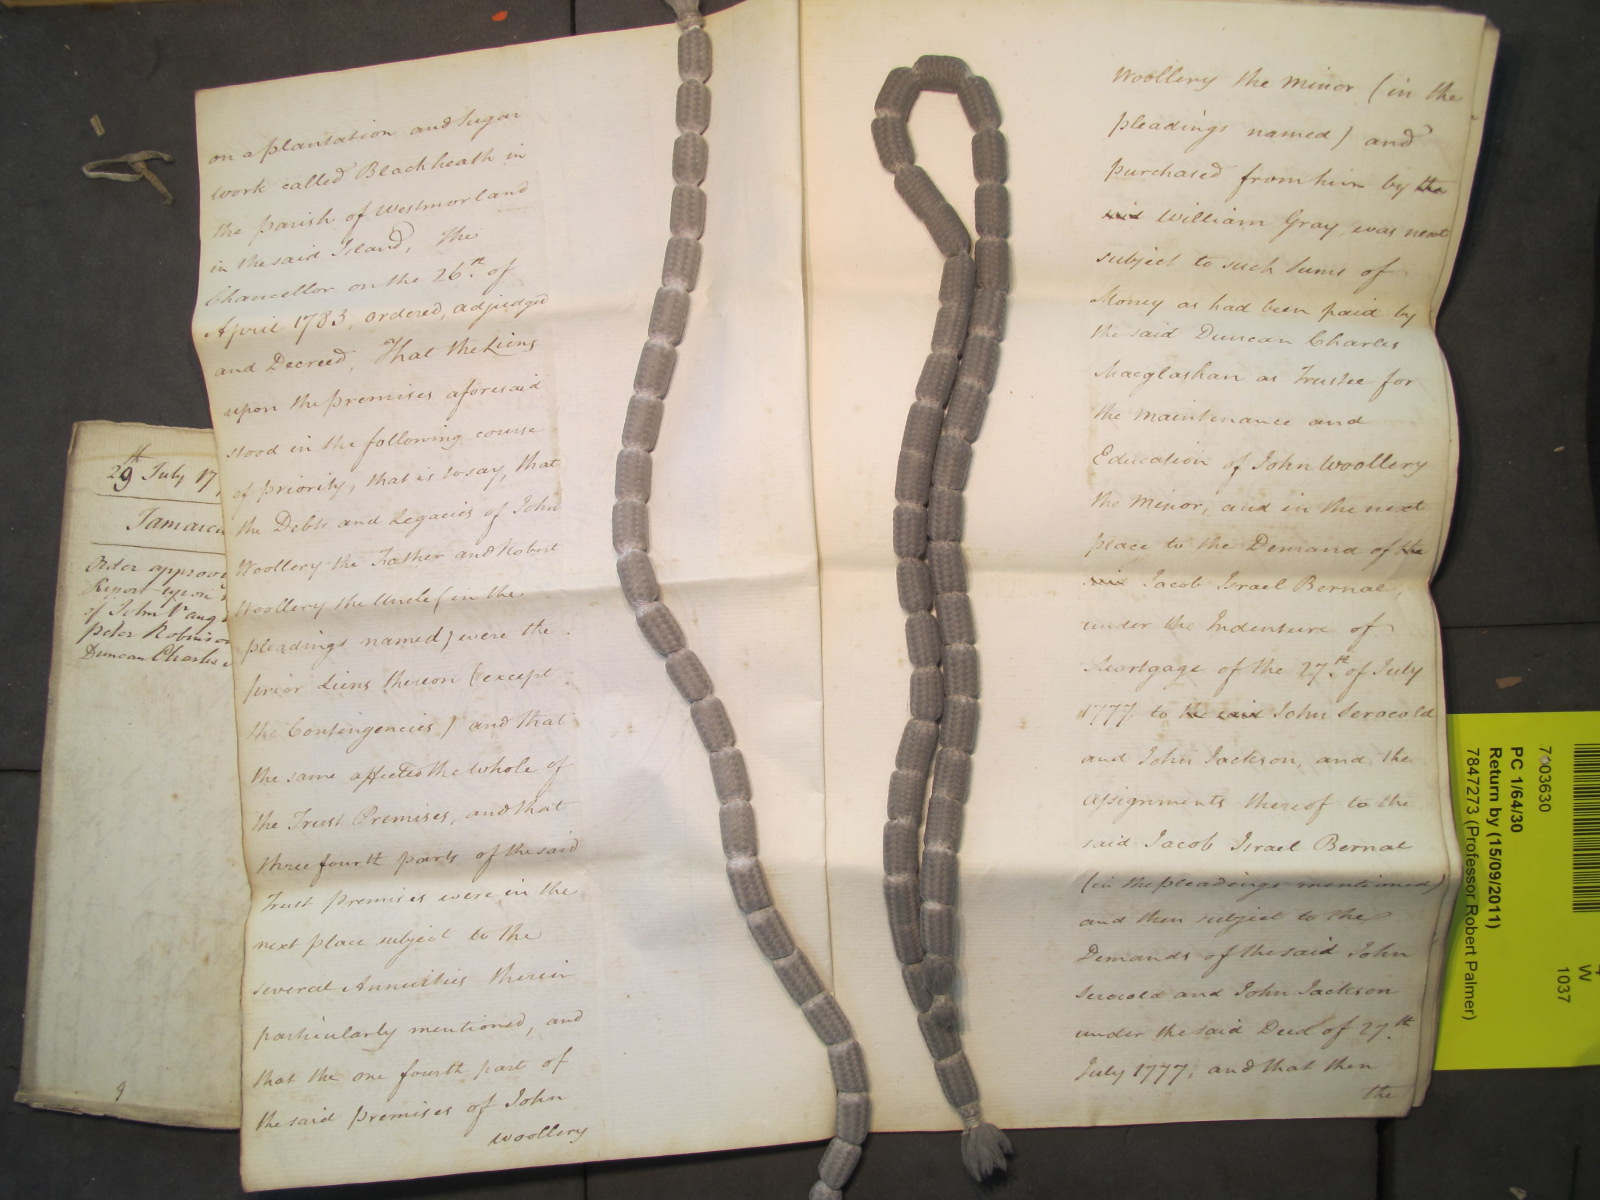 on a plantation and Sugar
work called Blackheath in
the parish of Westmorland
in the said Island, The
Chancellor on the 26th. of
April 1783, ordered, adjudged
and Decreed, That the Liens
upon the premises aforesaid
stood in the following course
of priority, that is to say, that
the Debts and Legacies of John
Woollery the Father and Robert
Woollery the Uncle (in the
pleadings named) were the
prior Liens thereon (except
the Contingencies) and that
the same affected the whole of
the Trust Premises, and that
three fourth parts of the said
Trust premises were in the
next place subject to the
several Annuities therein
particularly mentioned, and
that the one fourth part of
the said premises of John
Woollery
Woollery the minor (in the
pleadings named) and
purchased from him by the
said William Gray, was next
subject to such Sums of
Money as had been paid by
the said Duncan Charles
Macglashan as Trustee for
the maintenance and
Education of John Woollery
the Minor, and in the next
place to the Demand of the
said Jacob Israel Bernal,
under the Indenture of
Mortgage of the 27th. of July
1777, to the said John Serocold
and John Jackson, and the
assignments thereof to the
said Jacob Israel Bernal
(in the pleadings mentioned)
and then subject to the
Demands of the said John
Serocold and John Jackson
under the said Deed of 27th.
July 1777; and that then
the
29th July 17
Jamaica
Order approv
Report upon
of John Vaug
Peter Robinson
Duncan Charles
9
7003630
PC 1/64/30
Return by (15/09/2011)
7847273 (Professor Robert Palmer)
W
1037